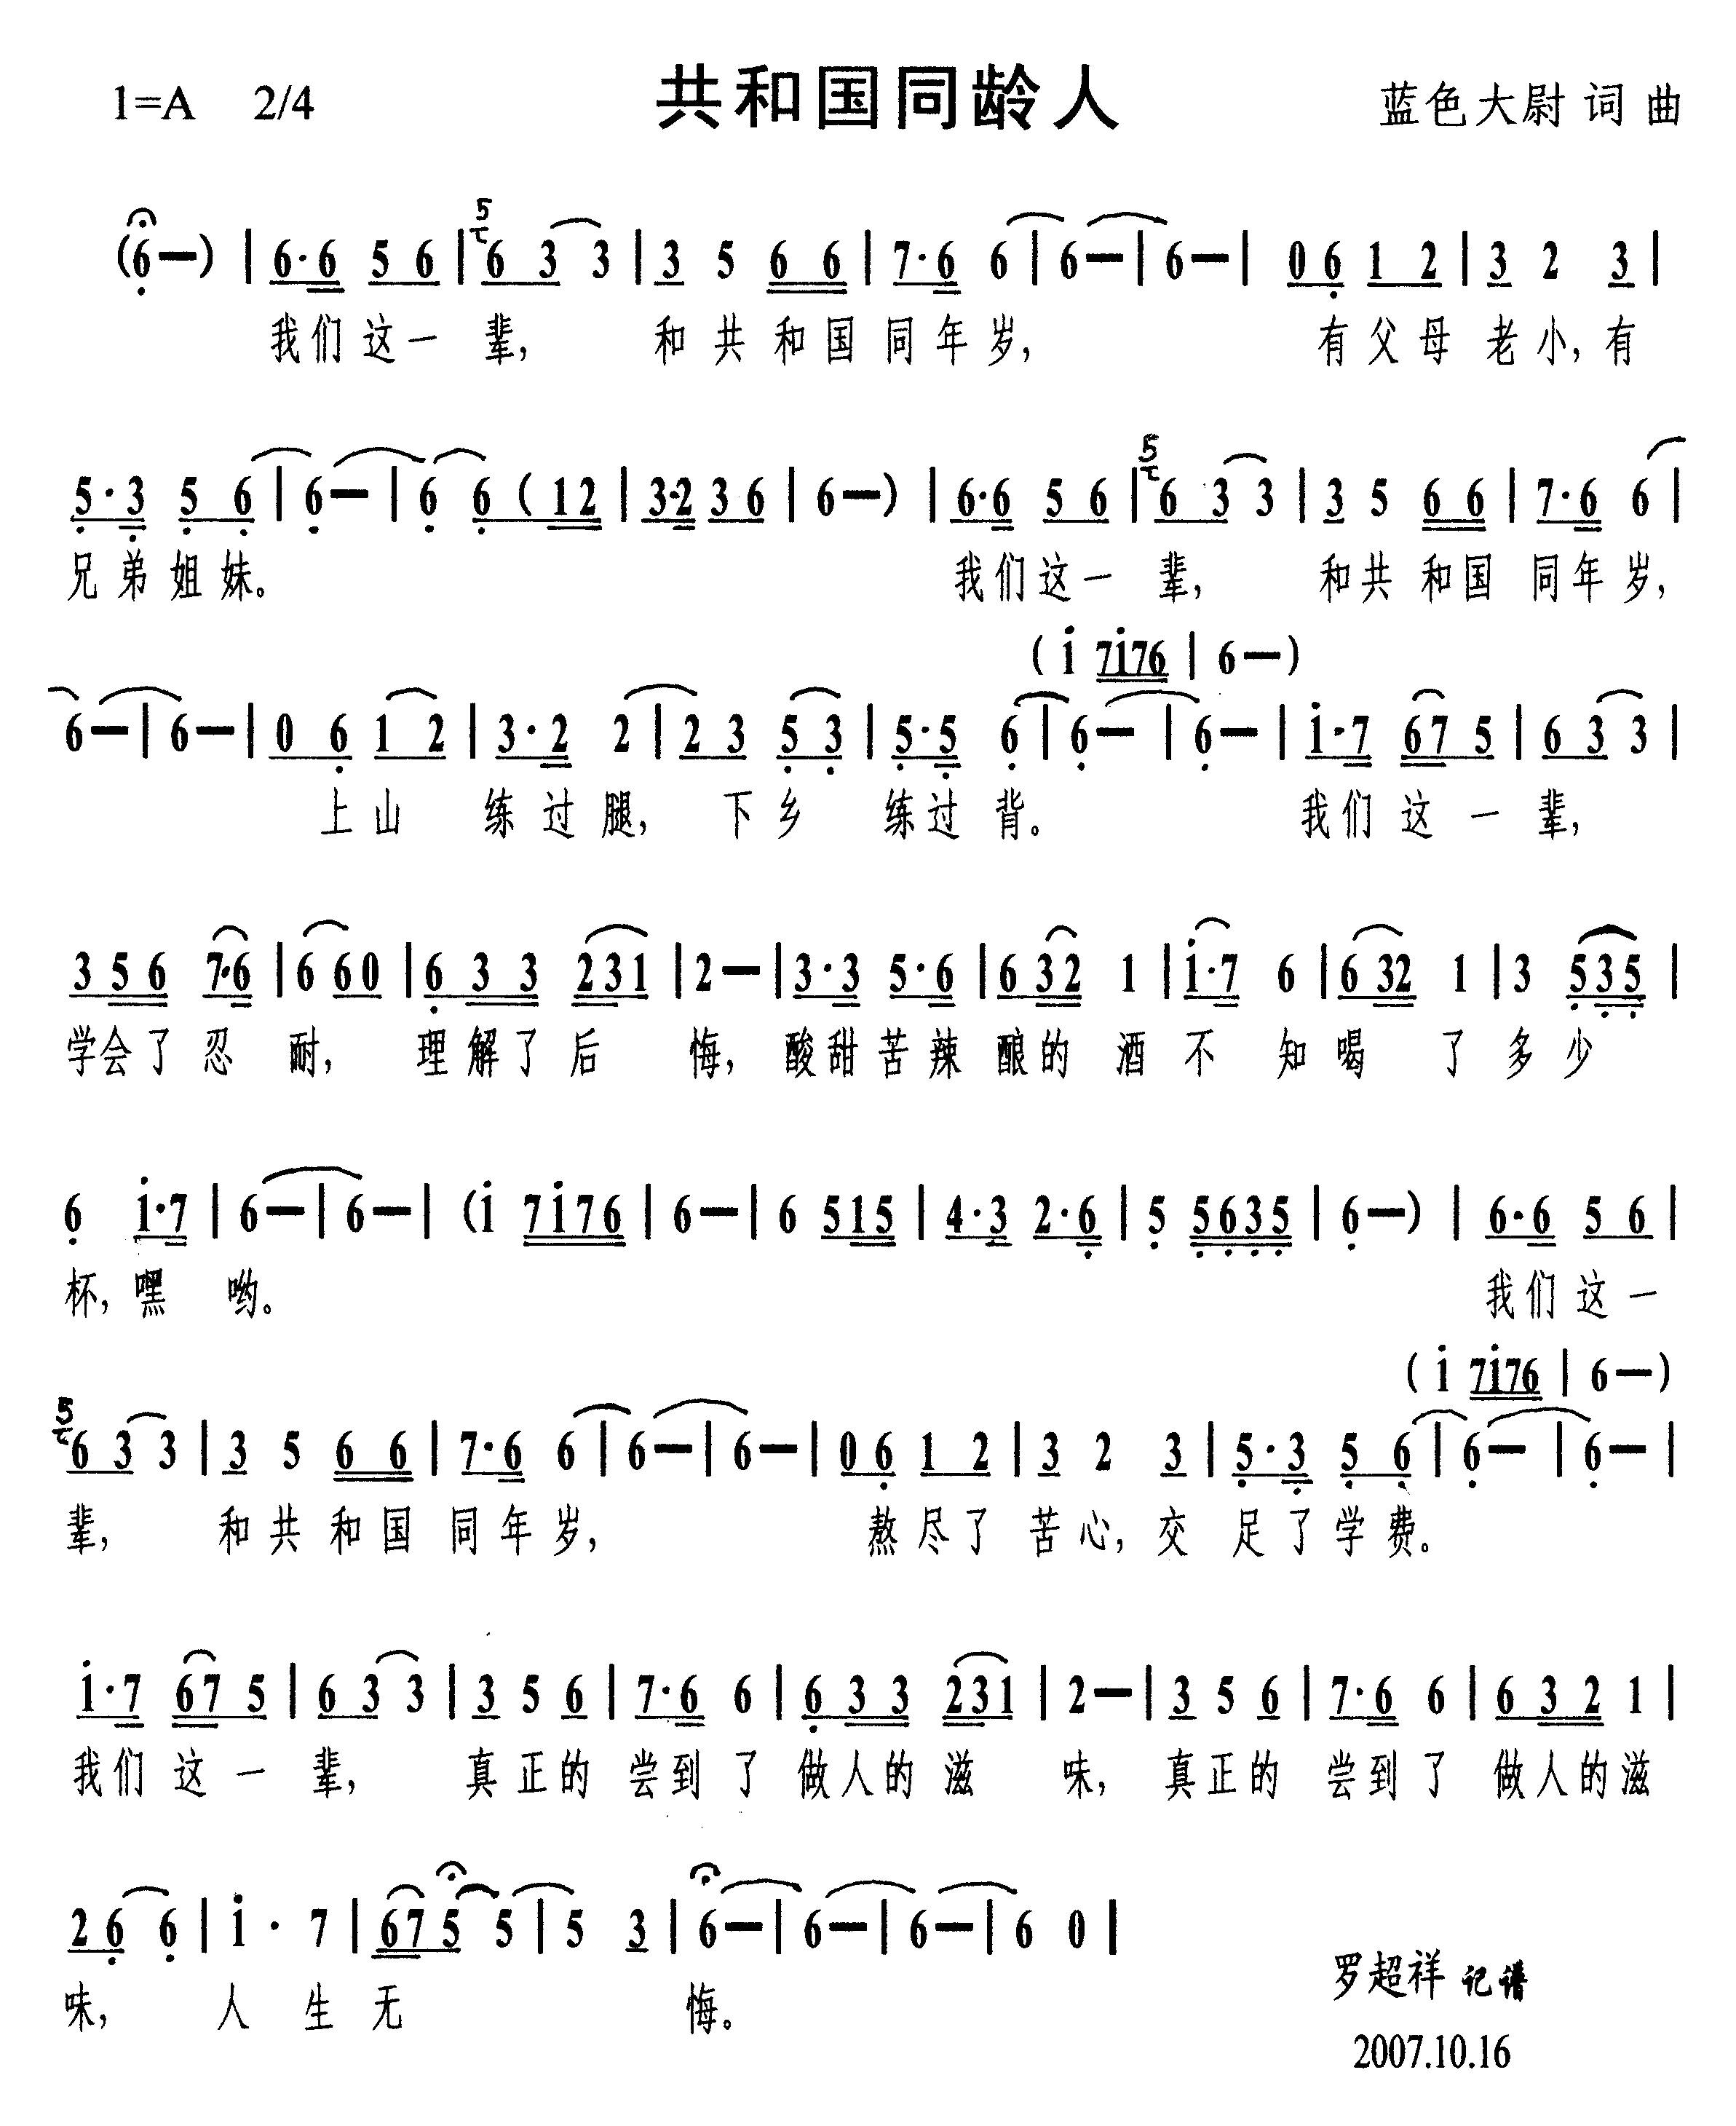 1=A 2/4 共和国同龄人 蓝色大尉 词 曲
5
(6—) | 6·6 5 6 | 6 3 3 | 3 5 6 6 | 7·6 6 | 6— | 6— | 0 6 1 2 | 3 2 3 |
我们这一 辈, 和共和国同年岁, 有父母老小,有
5
5·3 5 6 | 6— | 6 6 (12 | 3·2 3 6 | 6—) | 6·6 5 6 | 6 3 3 | 3 5 6 6 | 7·6 6 |
兄弟姐妹。 我们这一 辈, 和共 和国 同年岁,
(i 7i76 | 6—)
6— | 6— | 0 6 1 2 | 3·2 2 | 2 3 5 3 | 5·5 6 | 6— | 6— | i·7 67 5 | 6 3 3 |
上山 练过腿, 下乡 练过背。 我们这一辈,
3 5 6 7·6 | 6 60 | 6 3 3 231 | 2— | 3·3 5·6 | 6 32 1 | i·7 6 | 6 32 1 | 3 535 |
学会了忍 耐, 理解了后 悔, 酸甜苦辣 酿的 酒不 知喝 了多少
6 i·7 | 6— | 6— | (i 7i76 | 6— | 6 515 | 4·3 2·6 | 5 5635 | 6—) | 6·6 5 6 |
杯,嘿 哟。 我们这一
(i 7i76 | 6—)
5
6 3 3 | 3 5 6 6 | 7·6 6 | 6— | 6— | 0 6 1 2 | 3 2 3 | 5·3 5 6 | 6— | 6— |
辈, 和共和国 同年岁, 熬尽了 苦心,交 足了学费。
i·7 67 5 | 6 3 3 | 3 5 6 | 7·6 6 | 6 3 3 231 | 2— | 3 5 6 | 7·6 6 | 6 3 2 1 |
我们这一辈, 真正的 尝到了 做人的滋 味,真正的 尝到了 做人的滋
2 6 6 | i · 7 | 67 5 5 | 5 3 | 6— | 6— | 6— | 6 0 |
味, 人 生无 悔。
罗超祥 记谱
2007.10.16